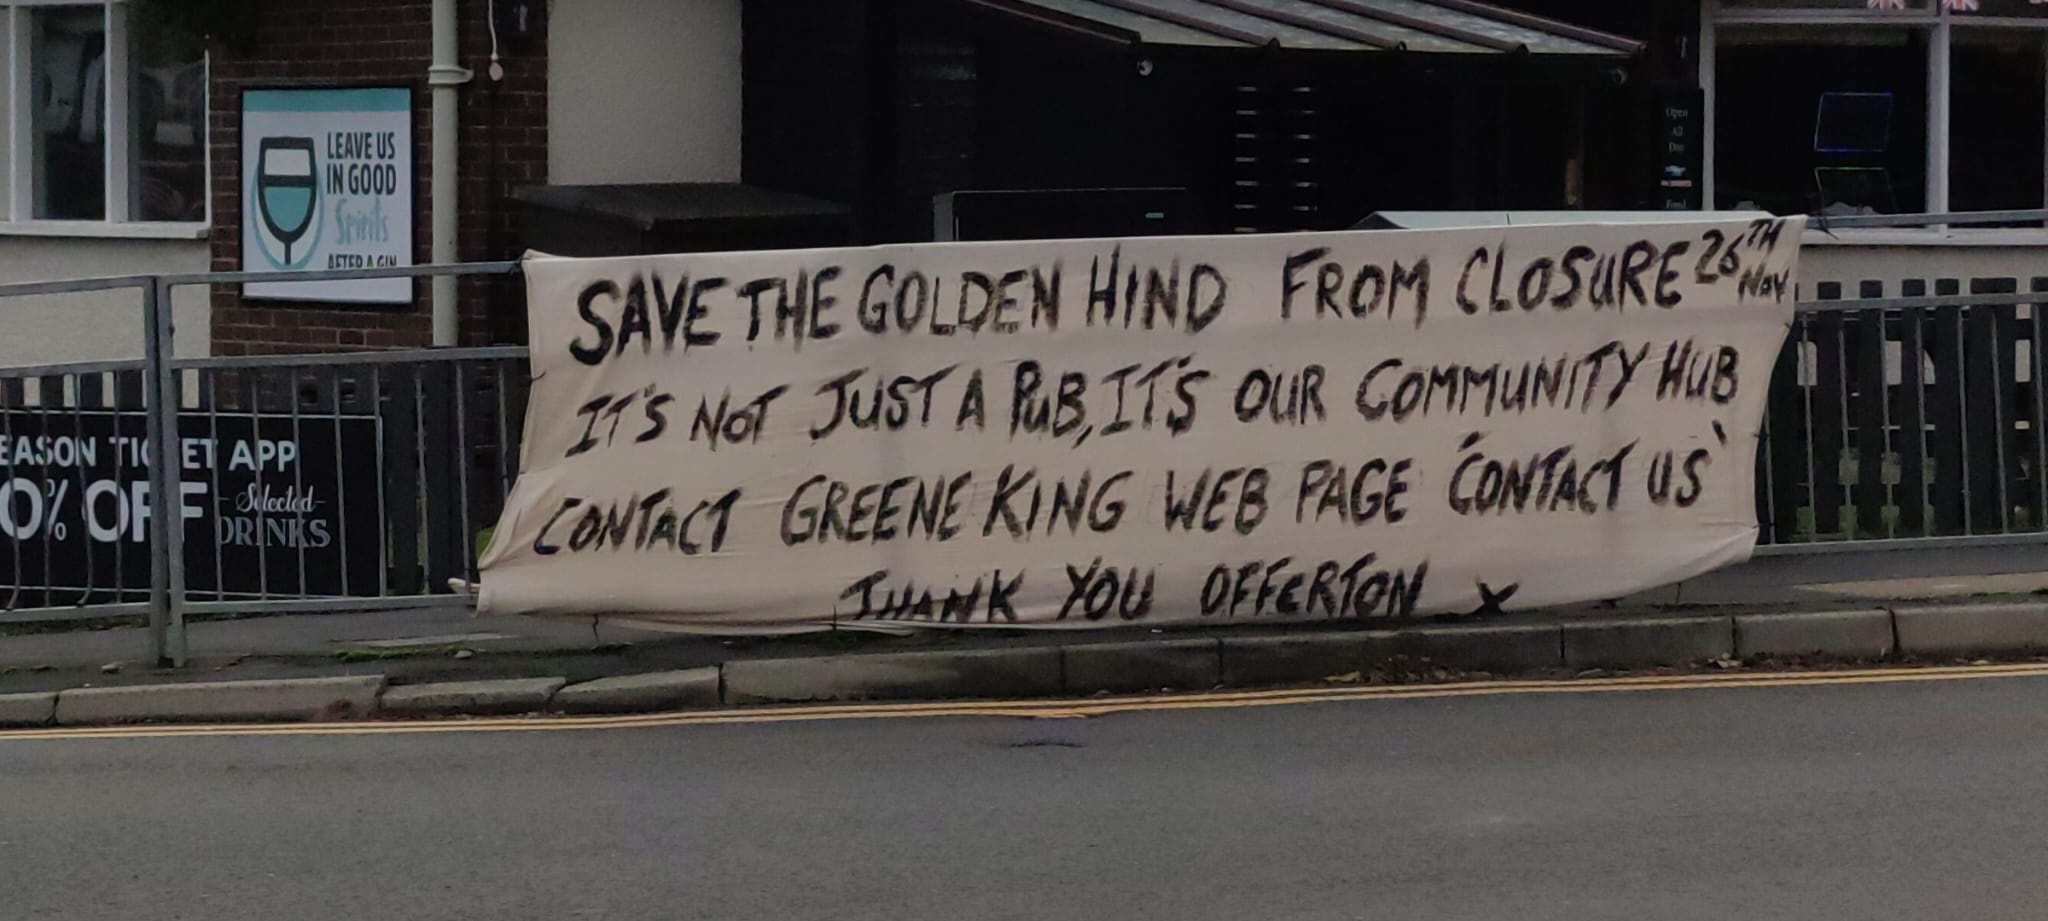 LEAVE US
IN GOOD
Spirits
AFTER A GIN
Open
All
Day
Food
SAVE THE GOLDEN HIND FROM CLOSURE 26TH NOV
IT'S NOT JUST A PUB, IT'S OUR COMMUNITY HUB
CONTACT GREENE KING WEB PAGE 'CONTACT US'
THANK YOU OFFERTON X
EASON TICKET APP
0% OFF Selected
DRINKS